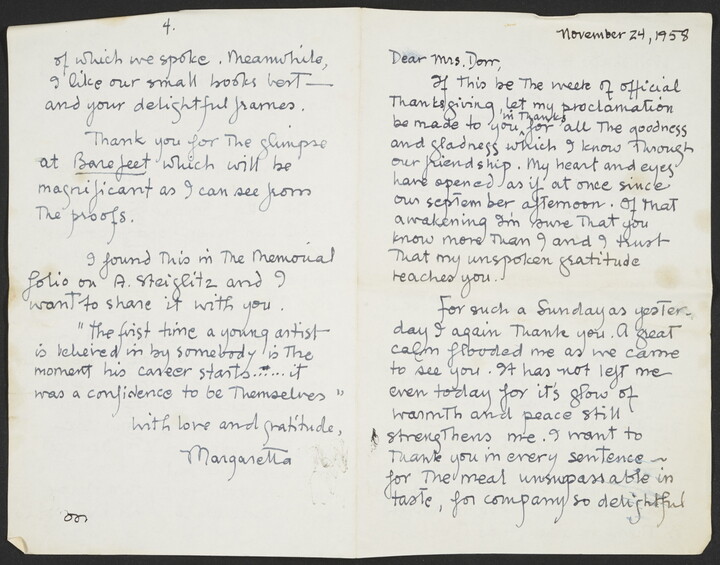 4.
of which we spoke. Meanwhile,
I like our small books best —
and your delightful frames.
Thank you for the glimpse
at Barefeet which will be
magnificant as I can see from
the proofs.
I found this in the Memorial
folio on A. Steiglitz and I
want to share it with you.
"The first time a young artist
is believed in by somebody is the
moment his career starts...... it
was a confidence to be themselves"
with love and gratitude,
Margaretta
November 24, 1958
Dear Mrs. Dorr,
If this be the week of official
Thanksgiving, let my proclamation
be made to you, in thanks for all the goodness
and gladness which I know through
our friendship. My heart and eyes
have opened as if at once since
our september afternoon. Of that
awakening I'm sure that you
know more than I and I trust
that my unspoken gratitude
reaches you.
For such a Sunday as yester-
day I again thank you. A great
calm flooded me as we came
to see you. It has not left me
even today for it's glow of
warmth and peace still
strengthens me. I want to
thank you in every sentence ~
for the meal unsurpassable in
taste, for company so delightful